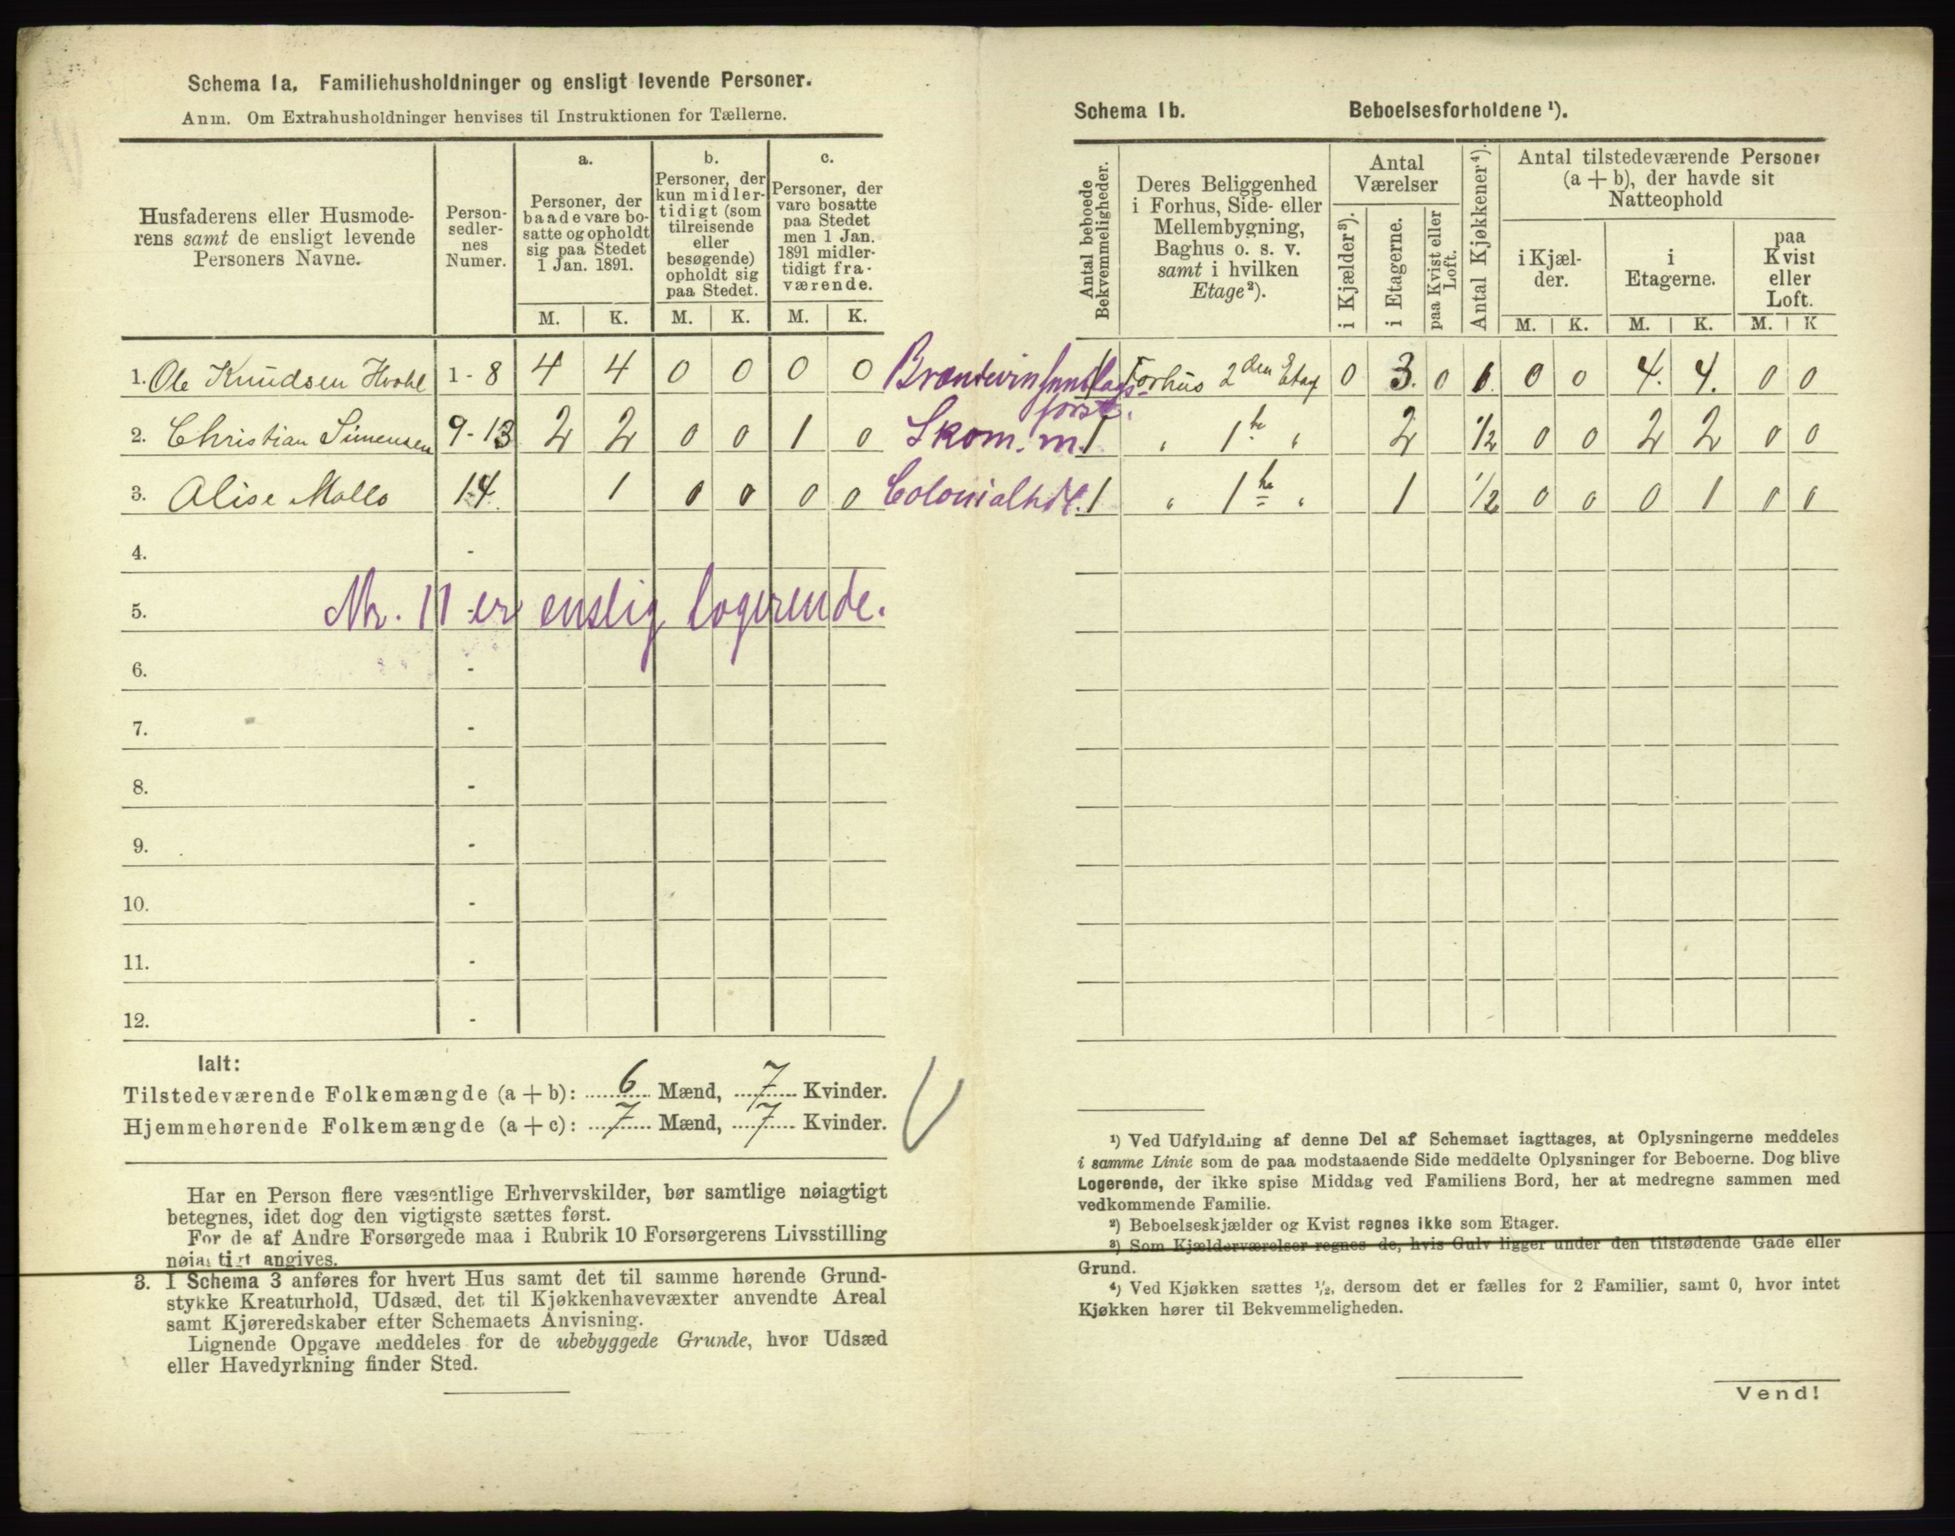 Schema 1a. Familiehusholdninger og ensligt levende Personer.
Anm. Om Extrahusholdninger henvises til Instruktionen for Tællerne.
Husfaderens eller Husmode-
rens samt de ensligt levende
Personers Navne.
Person-
sedler-
nes
Numer.
a.
Personer, der
baade vare bo-
satte og opholdt
sig paa Stedet
1 Jan. 1891.
b.
Personer, der
kun midler-
tidigt (som
tilreisende
eller
besøgende)
opholdt sig
paa Stedet.
c.
Personer, der
vare bosatte
paa Stedet
men 1 Jan.
1891 midler-
tidigt fra-
værende.
M. K. M. K. M. K.
1. Ole Knudsen 1 - 8 4 4 0 0 0 0
2. Christian Simensen 9 - 13 2 2 0 0 1 0
3. Alise Mollo 14 1 0 0 0 0
4. -
5. Nr. 11 er enslig logerende.
6. -
7. -
8. -
9. -
10. -
11. -
12. -
Ialt:
Tilstedeværende Folkemængde (a + b): 6 Mænd, 7 Kvinder.
Hjemmehørende Folkemængde (a + c): 7 Mænd, 7 Kvinder.
Har en Person flere væsentlige Erhvervskilder, bør samtlige nøiagtigt
betegnes, idet dog den vigtigste sættes først.
For de af Andre Forsørgede maa i Rubrik 10 Forsørgerens Livsstilling
nøiagtigt angives.
3. I Schema 3 anføres for hvert Hus samt det til samme hørende Grund-
stykke Kreaturhold, Udsæd, det til Kjøkkenhavevæxter anvendte Areal
samt Kjøreredskaber efter Schemaets Anvisning.
Lignende Opgave meddeles for de ubebyggede Grunde, hvor Udsæd
eller Havedyrkning finder Sted.
Schema 1b. Beboelsesforholdene ¹).
Antal beboede
Bekvemmeligheder.
Deres Beliggenhed
i Forhus, Side- eller
Mellembygning,
Baghus o. s. v.
samt i hvilken
Etage²).
Antal
Værelser
i Kjælder³).
i Etagerne.
paa Kvist eller
Loft.
Antal Kjøkkener⁴).
Antal tilstedeværende Personer
(a + b), der havde sit
Natteophold
i Kjæl-
der.
i
Etagerne.
paa
Kvist
eller
Loft.
M. K. M. K. M. K
1 Forhus 2den Etag 0 3. 0 1. 0 0 4. 4. 0 0
Skom. m. 1 " 1te " 2 1/2 0 0 2 2 0 0
Colonialhdl. 1 " 1te " 1 1/2 0 0 0 1 0 0
¹) Ved Udfyldning af denne Del af Schemaet iagttages, at Oplysningerne meddeles
i samme Linie som de paa modstaaende Side meddelte Oplysninger for Beboerne. Dog blive
Logerende, der ikke spise Middag ved Familiens Bord, her at medregne sammen med
vedkommende Familie.
²) Beboelseskjælder og Kvist regnes ikke som Etager.
³) Som Kjælderværelser regnes de, hvis Gulv ligger under den tilstødende Gade eller
Grund.
⁴) Ved Kjøkken sættes ½, dersom det er fælles for 2 Familier, samt 0, hvor intet
Kjøkken hører til Bekvemmeligheden.
Vend!